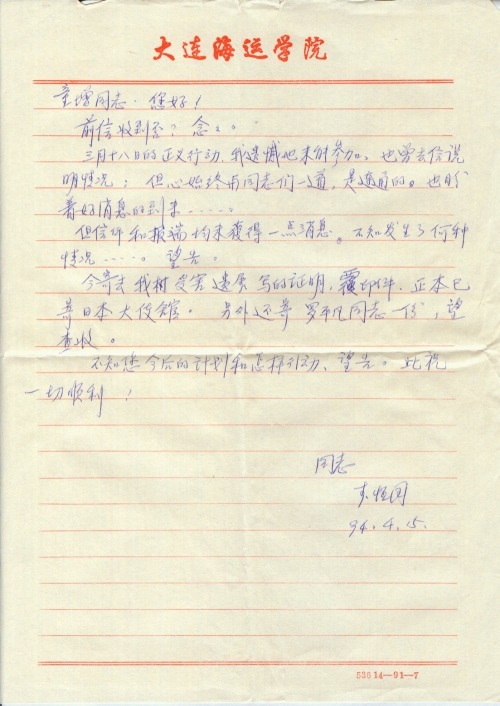 大连海运学院
童增同志·您好！
前信收到否？念念。
三月十八日的正义行动，我遗憾地未能参加。也曾去信说
明情况；但心始终与同志们一道，是连通的。也盼
着好消息的到来……
但信件和报端均未获得一点消息。不知发生了何种
情况……。望告。
今寄去我村受害遗属写的证明，复印件，正本已
寄日本大使馆。另外还寄罗平凡同志一份，望
查收。
不知您今后的计划和怎样行动，望告。此祝
一切顺利！
同志
94.4.15.
53614—91—7